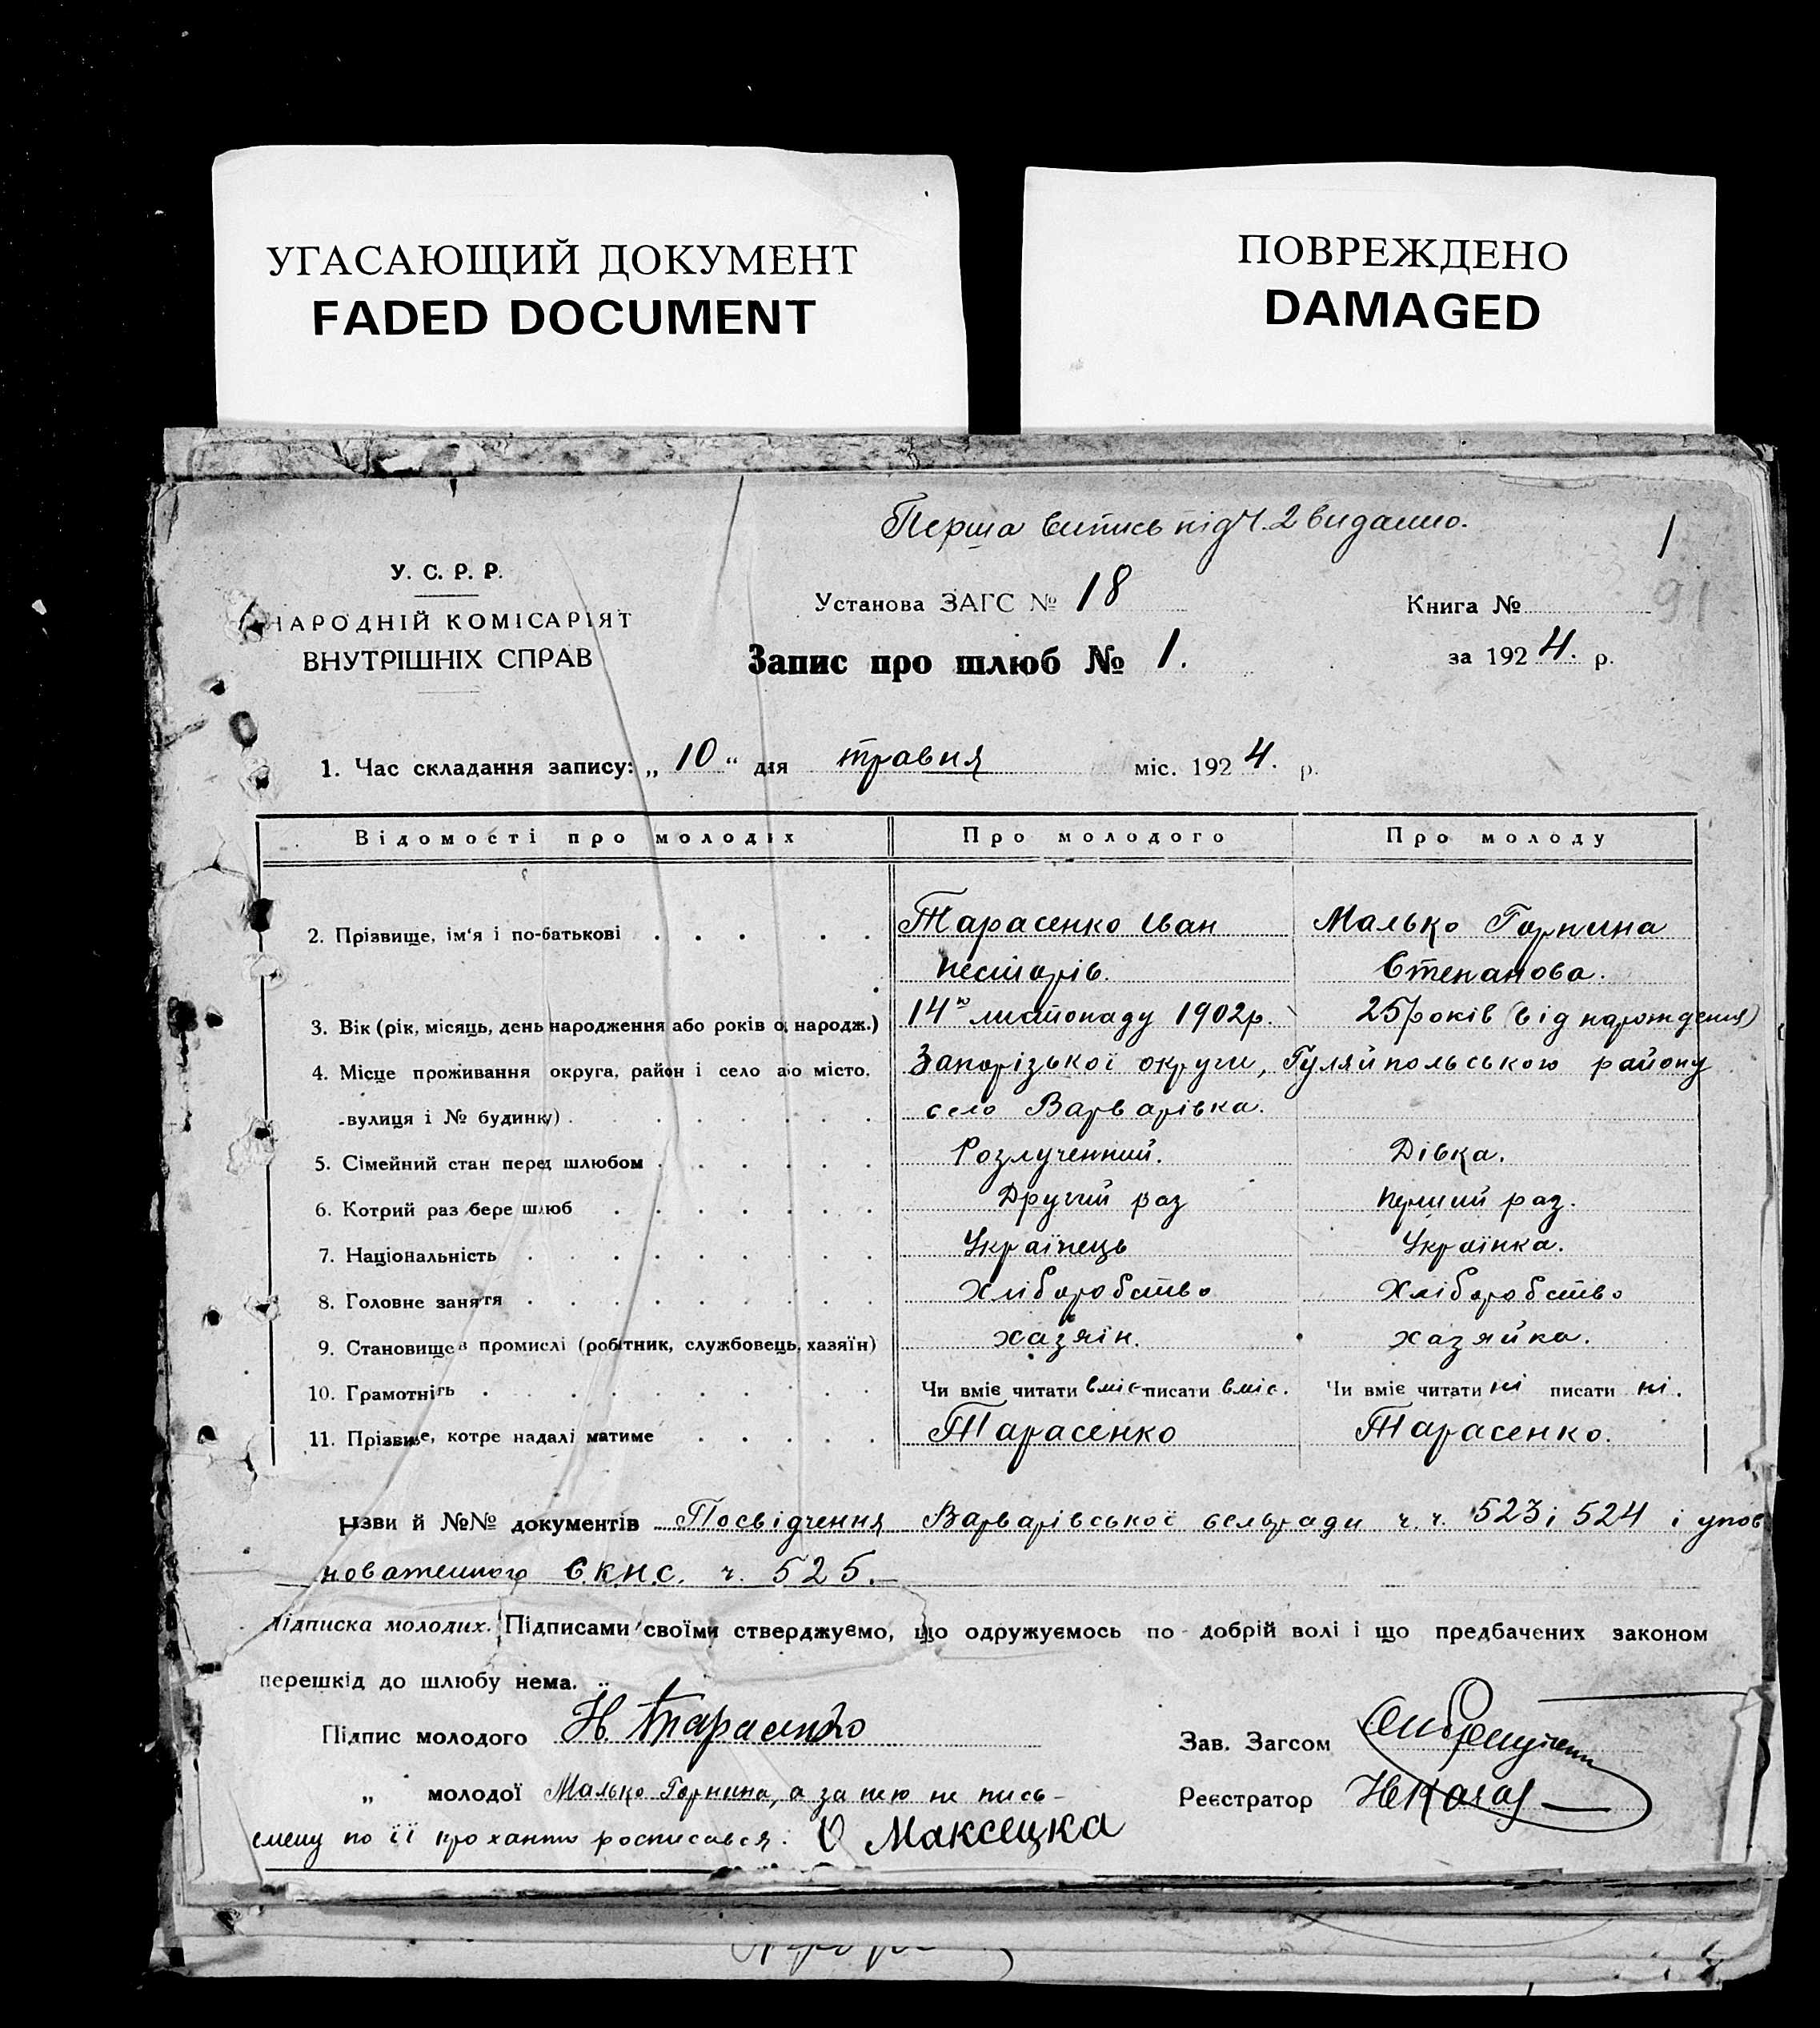 УГАСАЮЩИЙ ДОКУМЕНТ
FADED DOCUMENT
ПОВРЕЖДЕНО
DAMAGED
Перша витись під Ч. 2 видано.
1
91
У. С. Р. Р.
НАРОДНІЙ КОМІСАРІЯТ
ВНУТРІШНІХ СПРАВ
Установа ЗАГС № 18
Книга №
Запис про шлюб № 1.
за 1924. р.
1. Час складання запису: „ 10 “ дня травня міс. 1924. р.
Відомості про молодих Про молодого Про молоду
2. Прізвище, ім'я і по-батькові Тарасенко Іван Малько Горпина
Несторів. Степанова.
3. Вік (рік, місяць, день народження або років од народж.) 14го листопаду 1902р. 25 років (від народження)
4. Місце проживання округа, район і село або місто, Запорізької округи, Гуляйпольського району
вулиця і № будинку) село Варварівка.
5. Сімейний стан перед шлюбом Розлученний. Дівка.
6. Котрий раз бере шлюб Другий раз Перший раз.
7. Національність Українець Українка.
8. Головне заняття Хліборобство Хліборобство
9. Становище в промислі (робітник, службовець, хазяїн) хазяїн. хазяйка.
10. Грамотність Чи вміє читати вміє писати вміє. Чи вміє читати ні писати ні.
11. Прізвище, котре надалі матиме Тарасенко Тарасенко.
Назви й №№ документів Посвідчення Варварівської сельради ч.ч. 523 і 524 і упов
новаженного С.К.Н.С. ч. 525.
Підписка молодих. Підписами своїми стверджуємо, що одружуємось по добрій волі і що предбачених законом
перешкід до шлюбу нема.
Підпис молодого Н. Тарасенко
Зав. Загсом
„ молодої Малько Горпина, а за нею не пись-
Реєстратор
смену по її проханню росписався: О Максецка